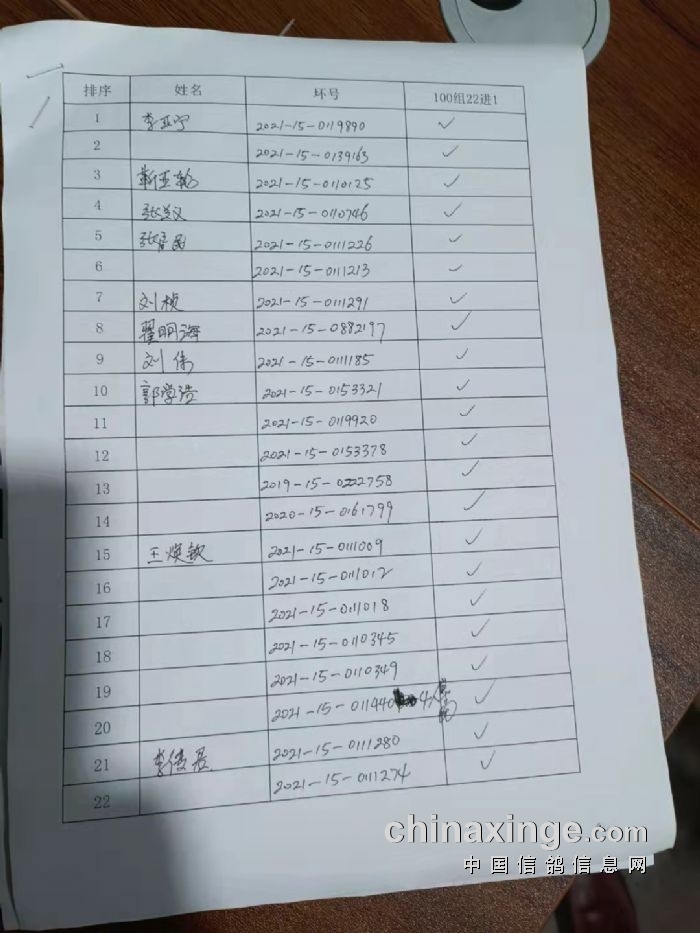 排序 姓名 环号 100组22进1
1 李亚宁 2021-15-0119890 ✓
2 2021-15-0139163 ✓
3 靳亚轮 2021-15-0110125 ✓
4 张兰义 2021-15-0110746 ✓
5 2021-15-0111226 ✓
6 2021-15-0111213 ✓
7 刘桢 2021-15-0111291 ✓
8 翟明海 2021-15-0882197 ✓
9 刘伟 2021-15-0111185 ✓
10 郭学浩 2021-15-0153321 ✓
11 2021-15-0119920 ✓
12 2021-15-0153378 ✓
13 2019-15-0222758 ✓
14 2020-15-0161799 ✓
15 王焕钦 2021-15-0111009 ✓
16 2021-15-0111012 ✓
17 2021-15-0111018 ✓
18 2021-15-0110345 ✓
19 2021-15-0110349 ✓
20 2021-15-011440 ✓
21 李俊 2021-15-0111280 ✓
22 2021-15-0111274 ✓
chinaxinge.com
中国信鸽信息网